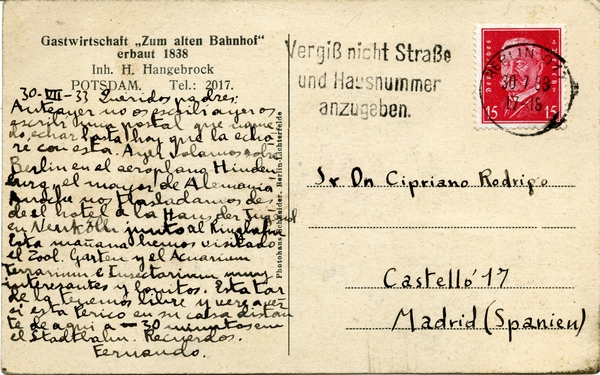 Gastwirtschaft „Zum alten Bahnhof"
erbaut 1838
Inh. H. Hangebrock
POTSDAM. Tel.: 2017.
30-VII-33 Queridos padres:
Anteayer no os escribí ayer os
escribí una postal que no pue
do echar hasta hoy que la echa
ré con esta. Ayer volamos sobre
Berlin en el aeroplano Hinden
burg el mayor de Alemania
Anoche nos trasladamos des
de el hotel a la Haus der Jugend
en Neukölln junto al Ringbahn
Esta mañana hemos visitado
el Zool. Garten y el Acuarium
Terrarium e Insectarium muy
interesantes y bonitos. Esta tar
de la tenemos libre y veré a ver
si esta Perico en su casa distan
te de aqui a - 30 minutos en
el Stadtbahn. Recuerdos.
Fernando.
Photohaus Schneider, Berlin-Lichterfelde
Vergiß nicht Straße
und Hausnummer
anzugeben.
BERLIN
30.7.33
17-18
15 15
Sr Dn Cipriano Rodrigo
Castelló 17
Madrid (Spanien)